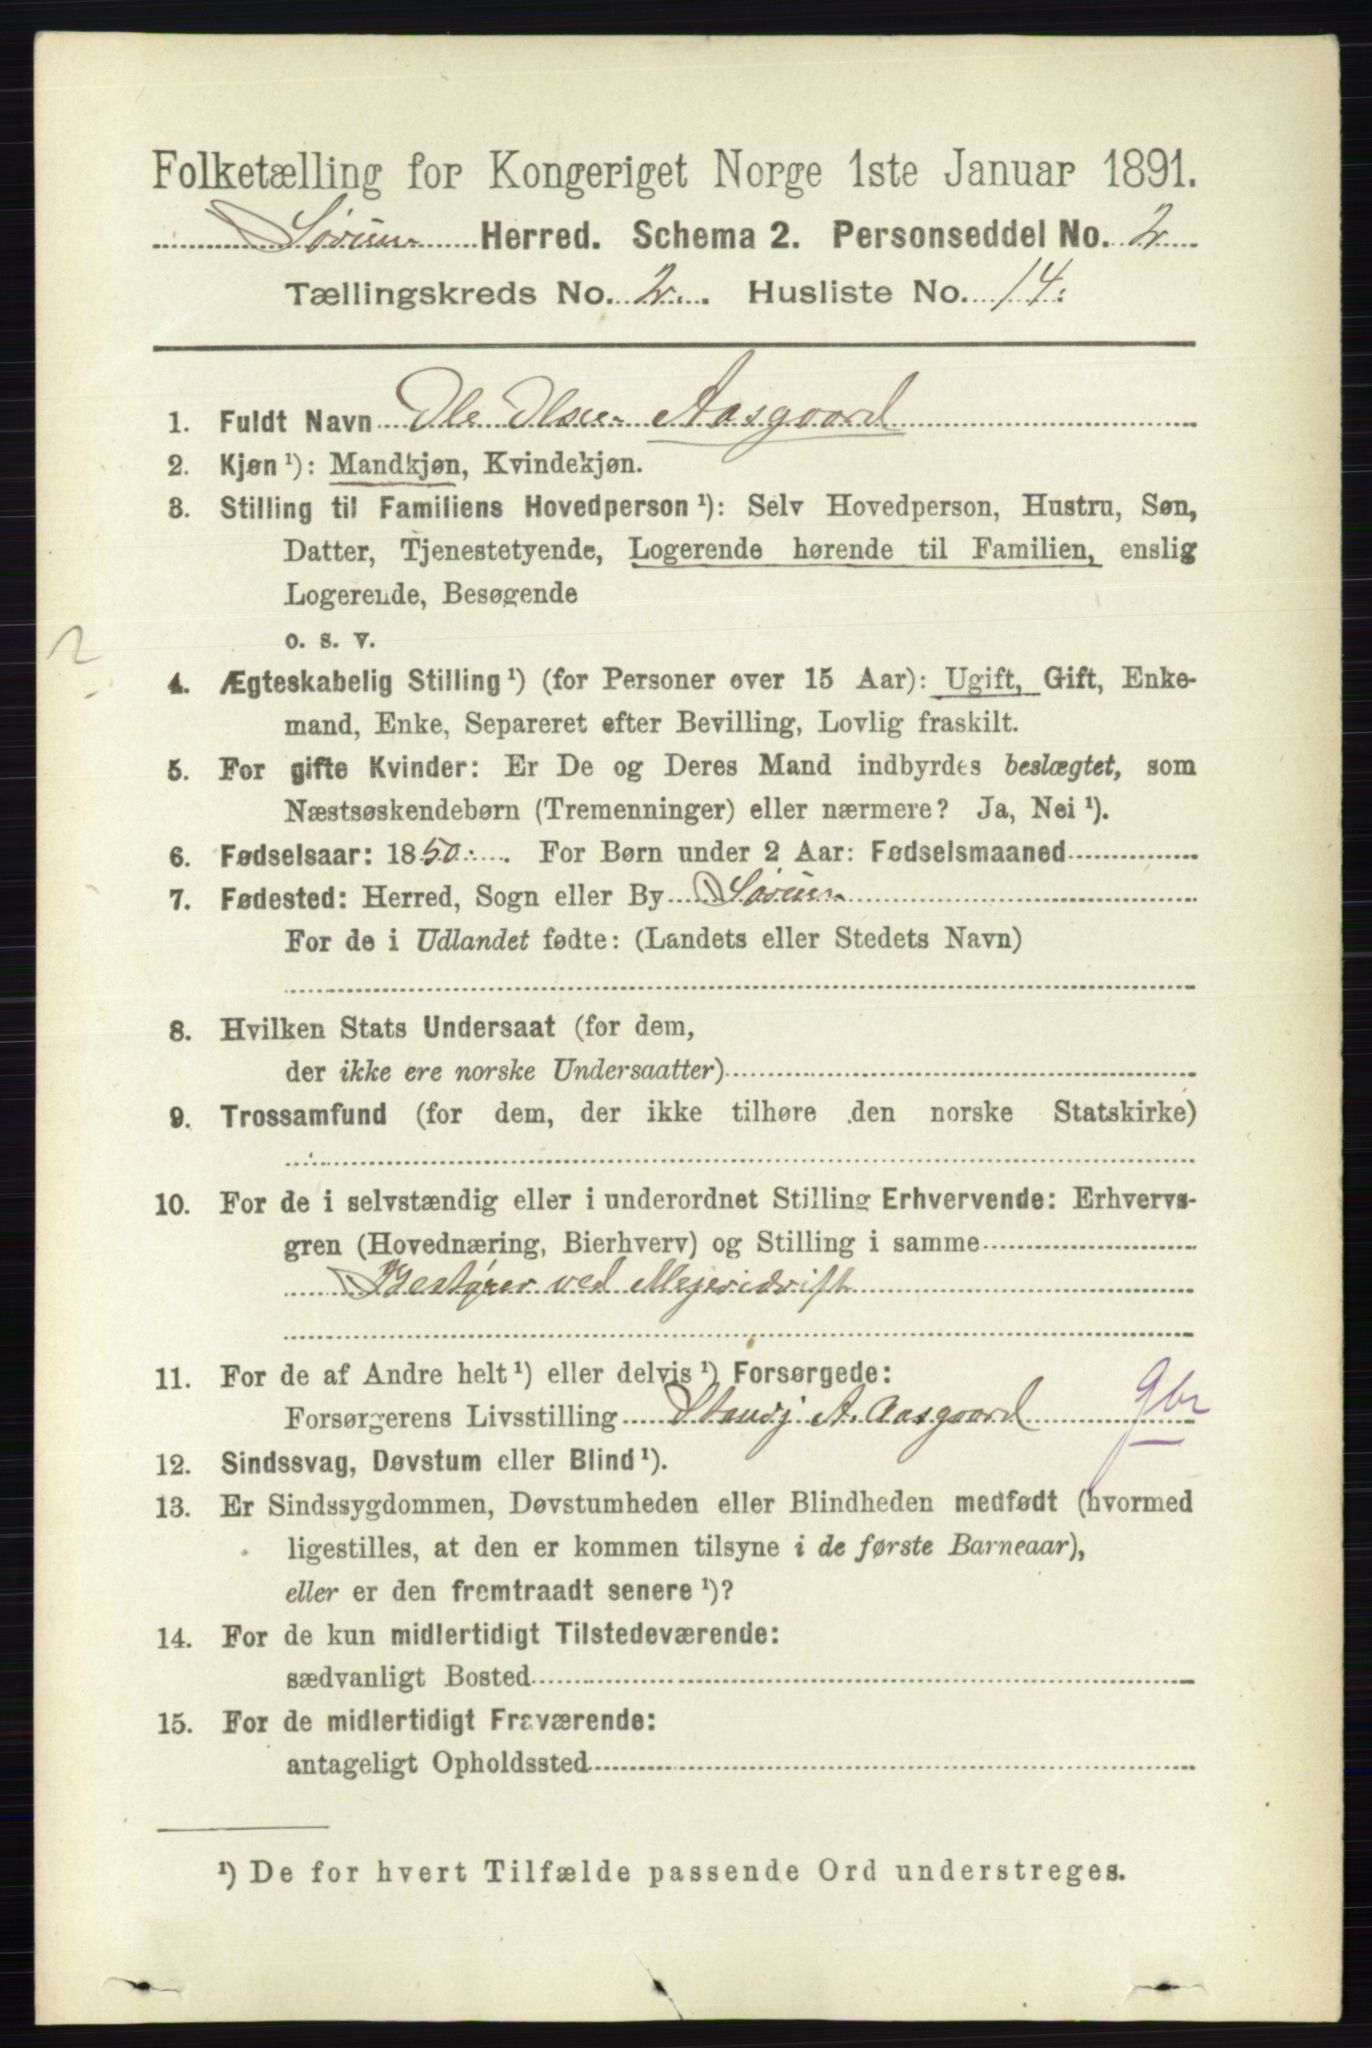 Folketælling for Kongeriget Norge 1ste Januar 1891.
Sørum Herred. Schema 2. Personseddel No. 2
Tællingskreds No. 2. Husliste No. 14.
1. Fuldt Navn Ole Olsen Aasgaard
2. Kjøn ¹): Mandkjøn, Kvindekjøn.
3. Stilling til Familiens Hovedperson ¹): Selv Hovedperson, Hustru, Søn,
Datter, Tjenestetyende, Logerende hørende til Familien, enslig
Logerende, Besøgende
o. s. v.
2
4. Ægteskabelig Stilling ¹) (for Personer over 15 Aar): Ugift, Gift, Enke-
mand, Enke, Separeret efter Bevilling, Lovlig fraskilt.
5. For gifte Kvinder: Er De og Deres Mand indbyrdes beslægtet, som
Næstsøskendebørn (Tremenninger) eller nærmere? Ja, Nei ¹).
6. Fødselsaar: 1850. For Børn under 2 Aar: Fødselsmaaned
7. Fødested: Herred, Sogn eller By Sørum
For de i Udlandet fødte: (Landets eller Stedets Navn)
8. Hvilken Stats Undersaat (for dem,
der ikke ere norske Undersaatter)
9. Trossamfund (for dem, der ikke tilhøre den norske Statskirke)
10. For de i selvstændig eller i underordnet Stilling Erhvervende: Erhvervs-
gren (Hovednæring, Bierhverv) og Stilling i samme
Bestyrer ved Mejeridrift
11. For de af Andre helt ¹) eller delvis ¹) Forsørgede:
Forsørgerens Livsstilling A. Aasgaard gbr
12. Sindssvag, Døvstum eller Blind ¹).
13. Er Sindssygdommen, Døvstumheden eller Blindheden medfødt (hvormed
ligestilles, at den er kommen tilsyne i de første Barneaar),
eller er den fremtraadt senere ¹)?
14. For de kun midlertidigt Tilstedeværende:
sædvanligt Bosted
15. For de midlertidigt Fraværende:
antageligt Opholdssted
¹) De for hvert Tilfælde passende Ord understreges.